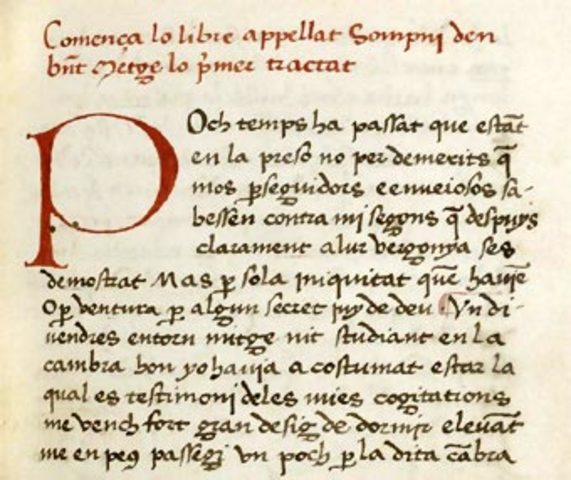 Comença lo libre appellat Sompni den
bñt Metge lo p̃mer tractat
POch temps ha passat que estãt
en la preso no per demerits q̃
mos p̱seguidors e enueiosos sa-
bessen contra mi segons q̃ despuys
clarament a lur vergonya ses
demostrat Mas p̱ sola iniquitat que hauiẽ
O p̱ ventura p̱ algun secret iuy de deu Vn di-
uendres entorn mitge nit studiant en la
cambra hon yo hauia acostumat estar la
qual es testimoni deles mies cogitations
me vench fort gran desig de dormir e leuãt
me en peus passegi vn poch p̱ la dita cãbra